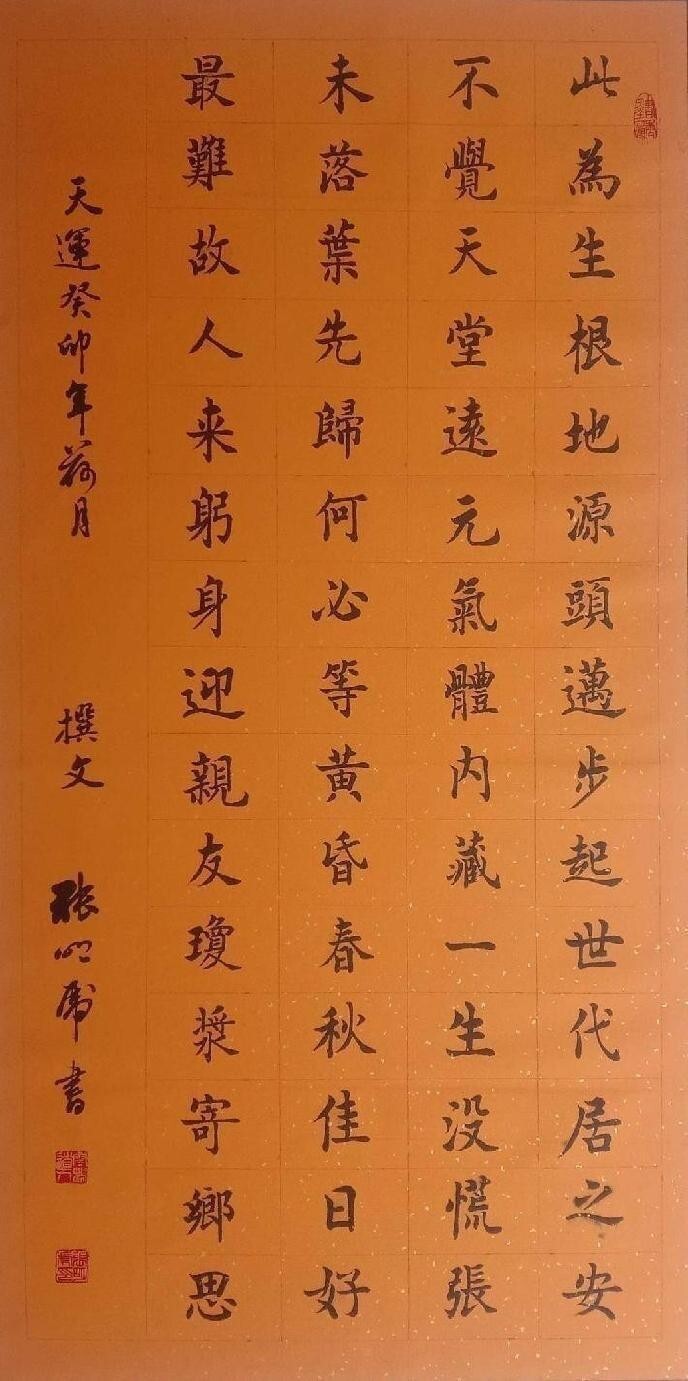 此為生根地源頭邁步起世代居之安
不覺天堂遠元氣體內藏一生没慌張
未落葉先歸何必等黃昏春秋佳日好
最難故人来躬身迎親友瓊漿寄鄉思
天運癸卯年荷月 撰文 張 書